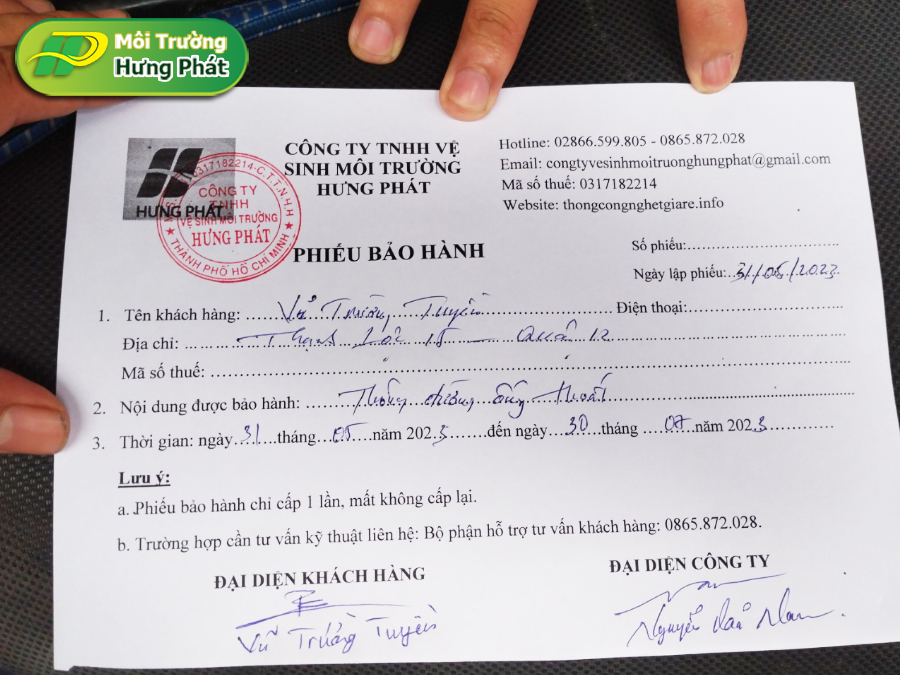 Môi Trường
Hưng Phát
CÔNG TY TNHH VỆ
SINH MÔI TRƯỜNG
HƯNG PHÁT
Hotline: 02866.599.805 - 0865.872.028
Email: congtyvesinhmoitruonghungphat@gmail.com
Mã số thuế: 0317182214
Website: thongcongnghetgiare.info
HƯNG PHÁT
0317182214-C.T.T.N.H.H
CÔNG TY
TNHH
VỆ SINH MÔI TRƯỜNG
HƯNG PHÁT
THÀNH PHỐ HỒ CHÍ MINH
PHIẾU BẢO HÀNH
Số phiếu:
Ngày lập phiếu: 31/05/2023
1. Tên khách hàng: Vũ Trường Tuyên Điện thoại:
Địa chỉ: Thạnh Lộc 15 — Quận 12
Mã số thuế:
2. Nội dung được bảo hành: Thông đường ống thoát
3. Thời gian: ngày 31 tháng 05 năm 2023 đến ngày 30 tháng 07 năm 2023
Lưu ý:
a. Phiếu bảo hành chỉ cấp 1 lần, mất không cấp lại.
b. Trường hợp cần tư vấn kỹ thuật liên hệ: Bộ phận hỗ trợ tư vấn khách hàng: 0865.872.028.
ĐẠI DIỆN KHÁCH HÀNG
ĐẠI DIỆN CÔNG TY
Vũ Trường Tuyên
Nguyễn Nam